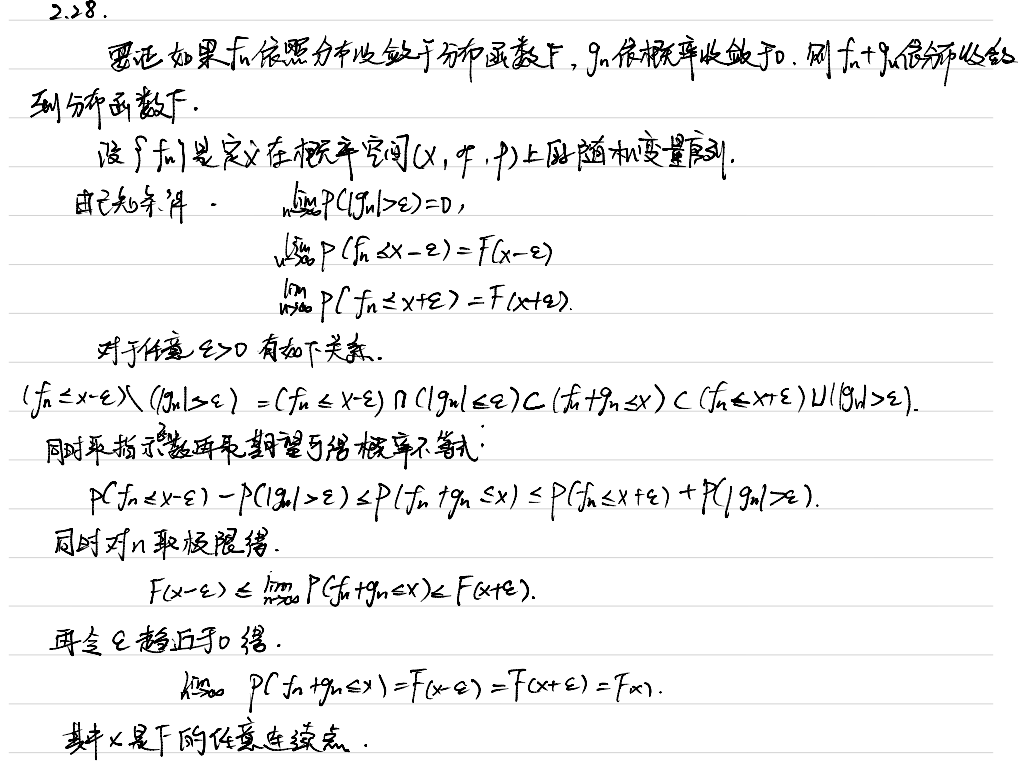 2.28.
要证如果fn依照分布收敛于分布函数F, gn依概率收敛于0. 则fn+gn依分布收敛
到分布函数F.
设{fn}是定义在概率空间(X, 𝓕, P)上的随机变量序列.
由已知条件. lim n→∞ P(|gn|>ε)=0,
lim n→∞ P(fn≤x-ε)=F(x-ε)
lim n→∞ P(fn≤x+ε)=F(x+ε).
对于任意ε>0有如下关系.
(fn≤x-ε)\(|gn|>ε) = (fn≤x-ε)∩(|gn|≤ε)⊂(fn+gn≤x)⊂(fn≤x+ε)∪(|gn|>ε).
同时取指示函数再取期望可得概率不等式:
P(fn≤x-ε)-P(|gn|>ε)≤P(fn+gn≤x)≤P(fn≤x+ε)+P(|gn|>ε).
同时对n取极限得.
F(x-ε)≤lim n→∞ P(fn+gn≤x)≤F(x+ε).
再令ε趋近于0得.
lim n→∞ P(fn+gn≤x)=F(x-ε)=F(x+ε)=F(x).
其中x是F的任意连续点.